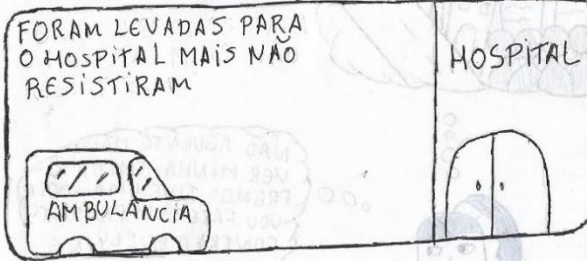 FORAM LEVADAS PARA
O HOSPITAL MAIS NÃO
RESISTIRAM
AMBULÂNCIA
HOSPITAL